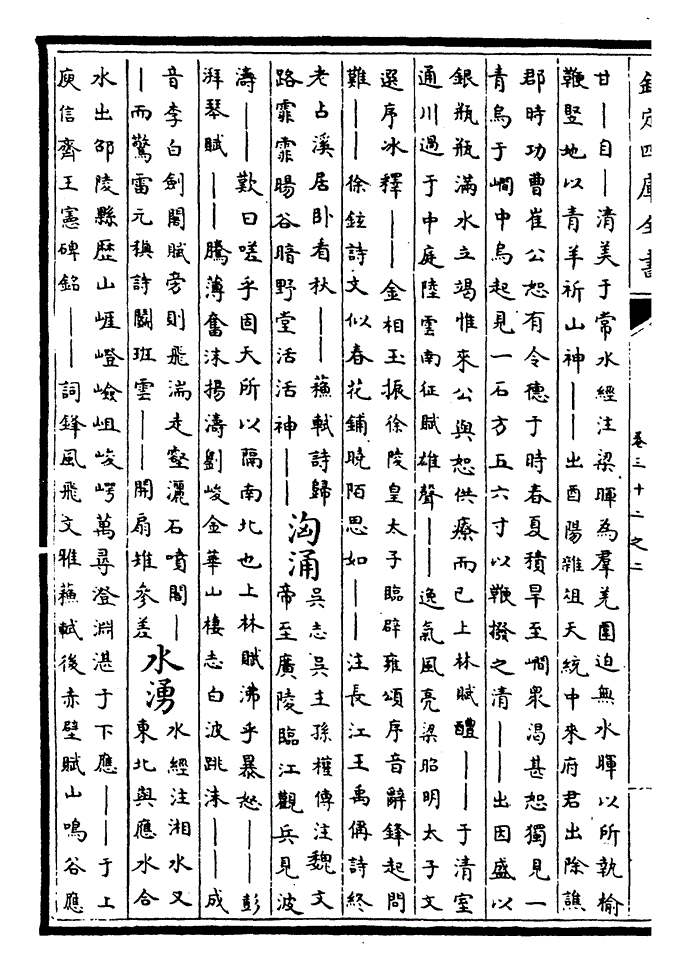 欽定四庫全書
卷三十二之二
甘｜自｜清美于常水經注梁暉為羣羌圍迫無水暉以所執榆
鞭竪地以青羊祈山神｜｜出酉陽雜俎天統中來府君出除譙
郡時功曹崔公恕有令德于時春夏積旱至㠉衆渴甚恕獨見一
青烏于㠉中烏起見一石方五六寸以鞭撥之清｜｜出因盛以
銀瓶瓶滿水立竭惟來公與恕供療而已上林賦醴｜｜于清室
通川過于中庭陸雲南征賦雄聲｜｜逸氣風亮梁昭明太子文
選序冰釋｜｜金相玉振徐陵皇太子臨辟雍頌序音辭鋒起問
難｜｜徐鉉詩文似春花鋪曉陌思如｜｜注長江王禹偁詩終
老占溪居卧看秋｜｜蘓軾詩歸
路霏霏暘谷暗野堂活活神｜｜
洶涌
吳志吳主孫權傳注魏文
帝至廣陵臨江觀兵見波
濤｜｜歎曰嗟乎固天所以隔南北也上林賦沸乎暴怒｜｜彭
湃琴賦｜｜騰薄奮沫揚濤劉峻金華山棲志白波跳沫｜｜成
音李白劍閣賦旁則飛湍走壑灑石噴閣｜
｜而驚雷元稹詩闞班雲｜｜開扇堆參差
水湧
水經注湘水又
東北與應水合
水出邵陵縣歷山崕嶝嶮岨峻崿萬尋澄淵湛于下應｜｜于上
庾信齊王憲碑銘｜｜詞鋒風飛文雅蘓軾後赤壁賦山鳴谷應